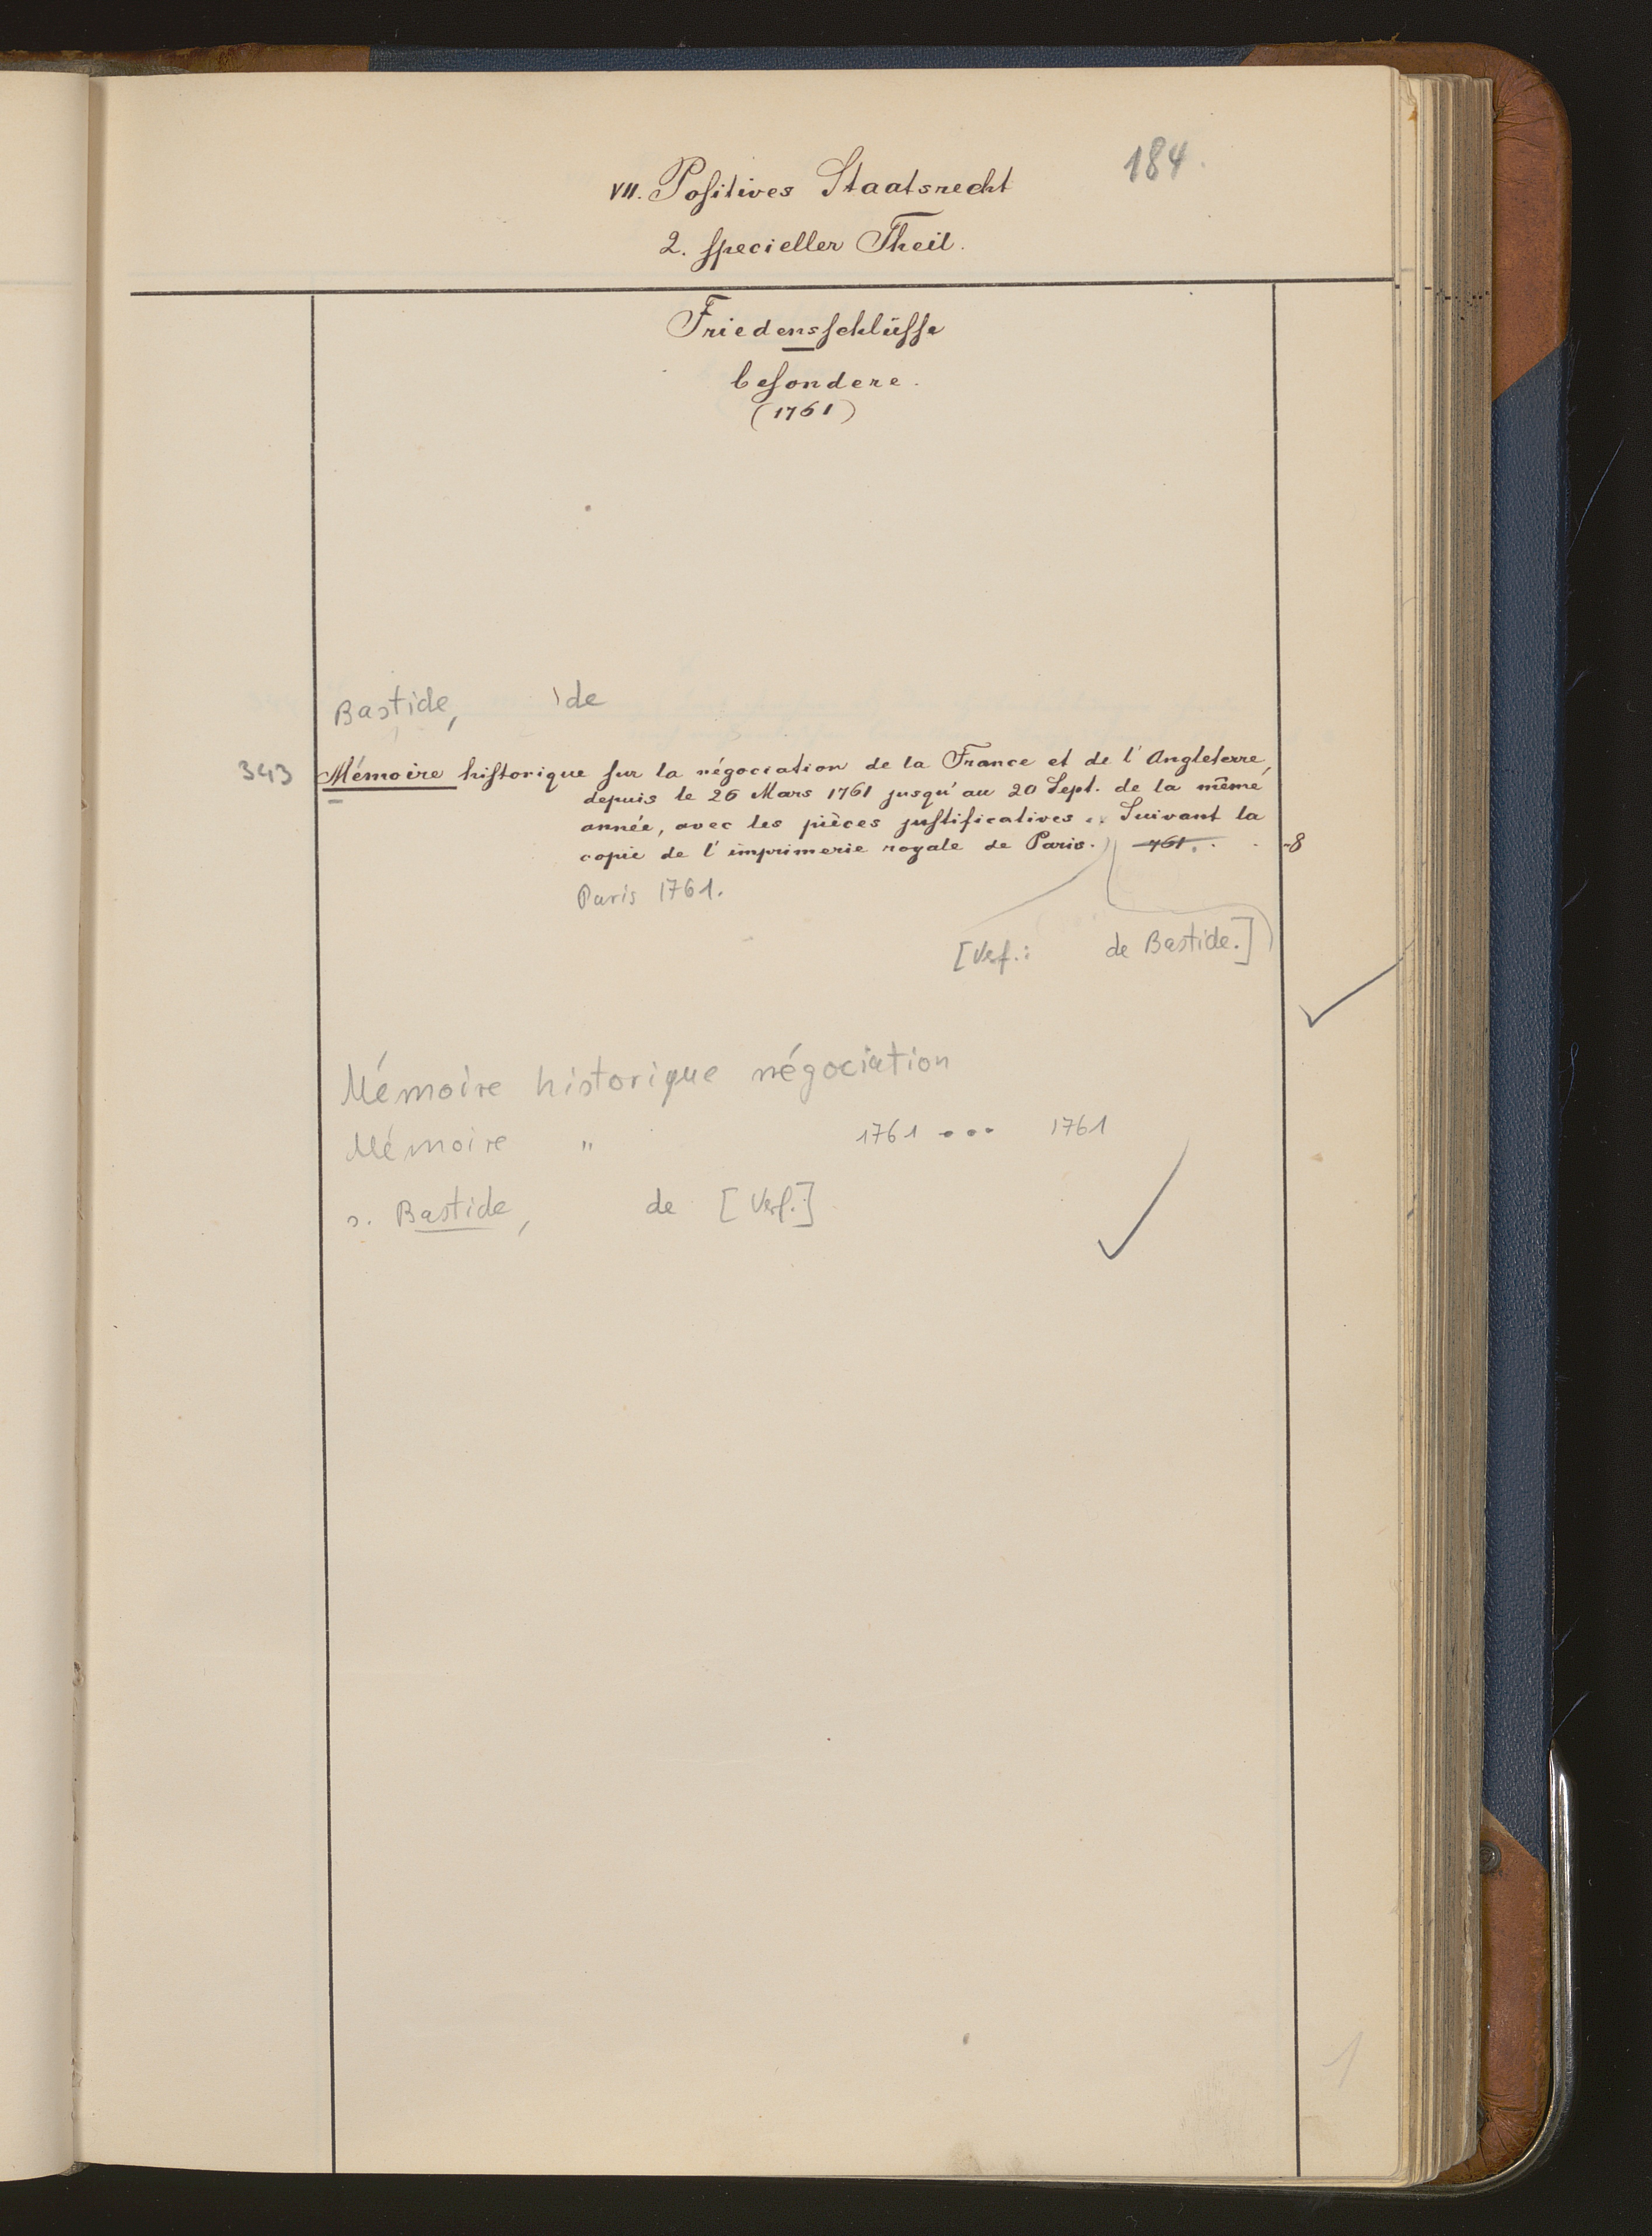 184.
VII. Positives Staatsrecht
2. specieller Theil.
Friedensschlüsse
besondere.
(1761)
Bastide, de
343 Mémoire historique sur la négociation de la France et de l'Angleterre,
depuis le 26 Mars 1761 jusqu'au 20 Sept. de la même
année, avec les pièces justificatives. Suivant la
copie de l'imprimerie royale de Paris. 761. -8
Paris 1761.
[Verf.: de Bastide.]
Mémoire historique négociation
Mémoire " 1761 ... 1761
s. Bastide, de [Verf.]
1